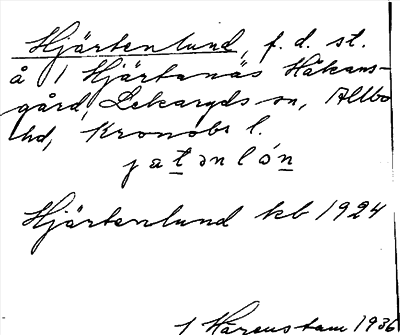 Hjärtenlund, f. d. st.
å 1 Hjärtanäs Håkans-
gård, Lekaryds sn, Allbo
hd, Kronobs l.
jatənlón
Hjärtenlund kb 1924
1 Härenstam 1936